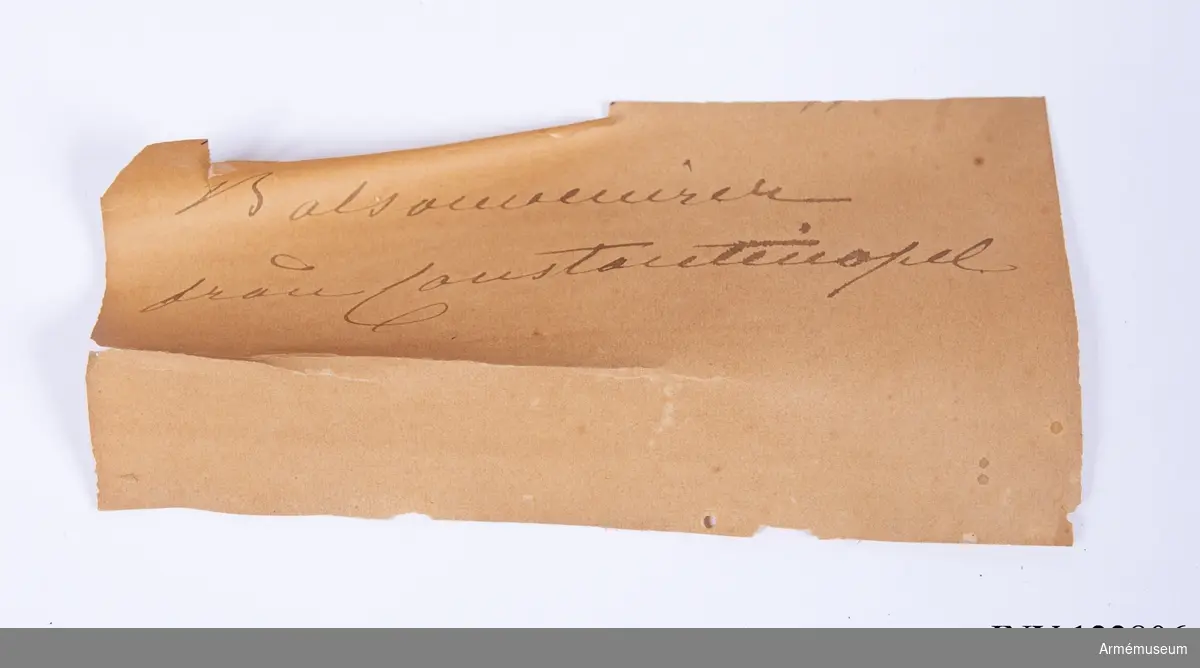 Balsouvenirer
från Constantinopel
Armémuseum